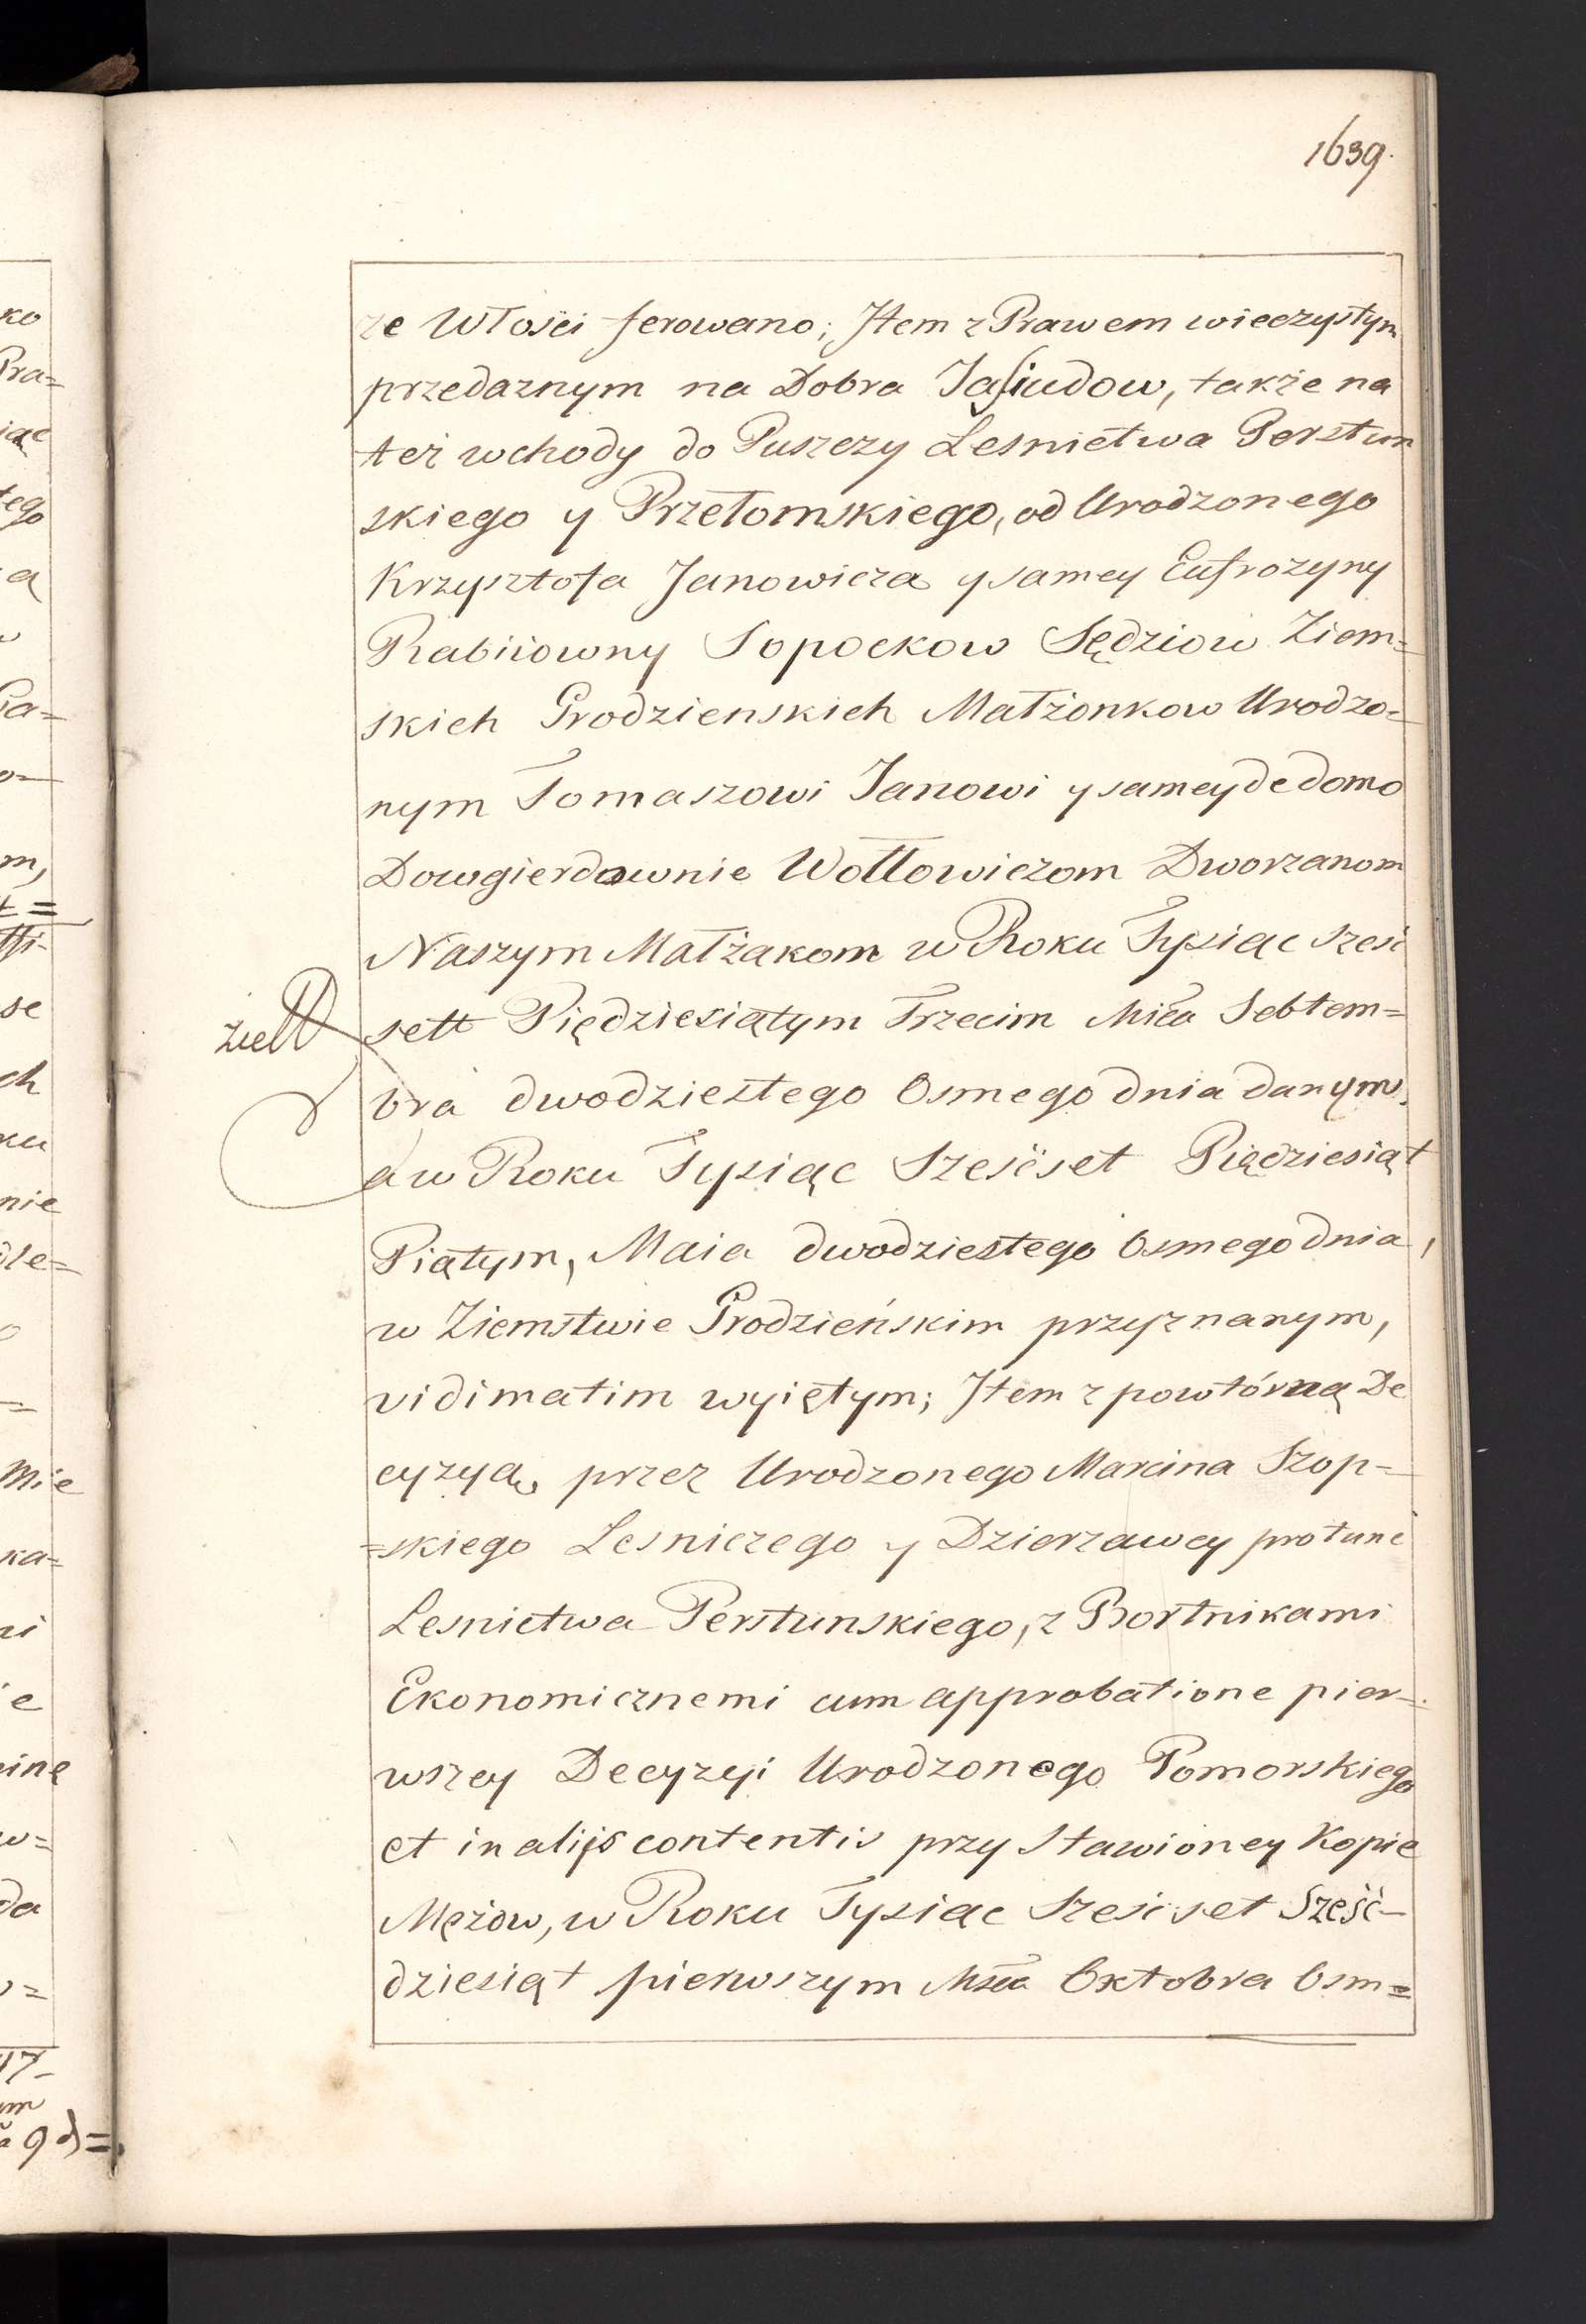 1639.
ze Włości ferowano; Item z Prawem wieczystym
przedaznym na Dobra Jasiudow, także na
też wchody do Puszczy Lesnictwa Perstun
skiego y Przełomskiego, od Urodzonego
Krzysztofa Janowicza y samey Eufrozyny
Rabiiowny Sopockow Sędziow Ziem=
skich Grodzienskich Małżonkow Urodzo=
nym Tomaszowi Janowi y samey de domo
Dowgierdownie Wołłowiczom Dworzanom
Naszym Małżakom w Roku Tysiąc sześć
sett Piędziesiątym Trzecim Mića Sebtem=
bra dwodziestego Osmego dnia danym,
a w Roku Tysiąc Szesćset Pięćdziesiąt
Piątym, Maia dwodziestego Osmego dnia,
w Ziemstwie Grodzieńskim przyznanym,
vidimatim wyiętym; Item z powtórną De
cyzyą, przez Urodzonego Marcina Szop=
=skiego Lesniczego y Dzierzawcy protunc
Lesnictwa Perstunskiego, z Bortnikami
Ekonomicznemi cum approbatione pier=
wszey Decyzyi Urodzonego Pomorskiego
et in alijs contentis przy Stawioney Kopie
Mężow, w Roku Tysiąc Szesćset Sześć-
dziesiąt pierwszym Msca Oktobra Osm=